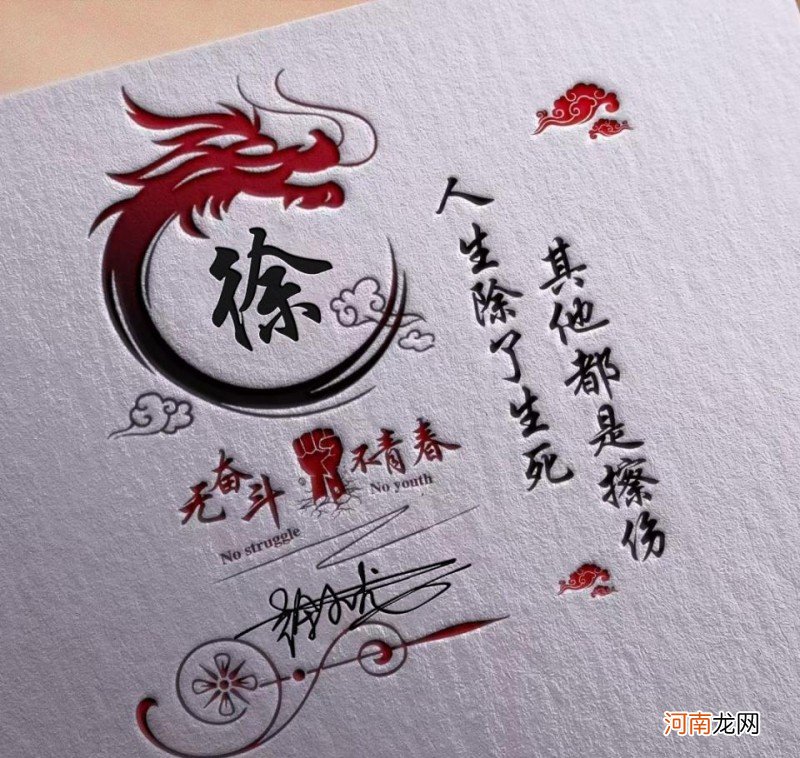 徐
人生除了生死
其他都是擦伤
无奋斗 不青春
No struggle No youth
河南龙网